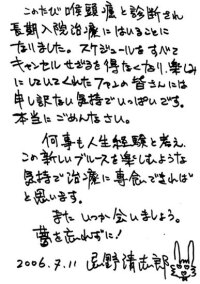 このたび喉頭癌と診断され
長期入院治療にはいることに
なりました。スケジュールをすべて
キャンセルせざるを得なくなり、楽しみ
にしていてくれたファンの皆さんには
申し訳ない気持でいっぱいです。
本当にごめんなさい。
何事も人生経験と考え、
この新しいブルースを楽しむような
気持で治療に専念できれば
と思います。
またいつか会いましょう。
夢を忘れずに！
2006.7.11 忌野清志郎